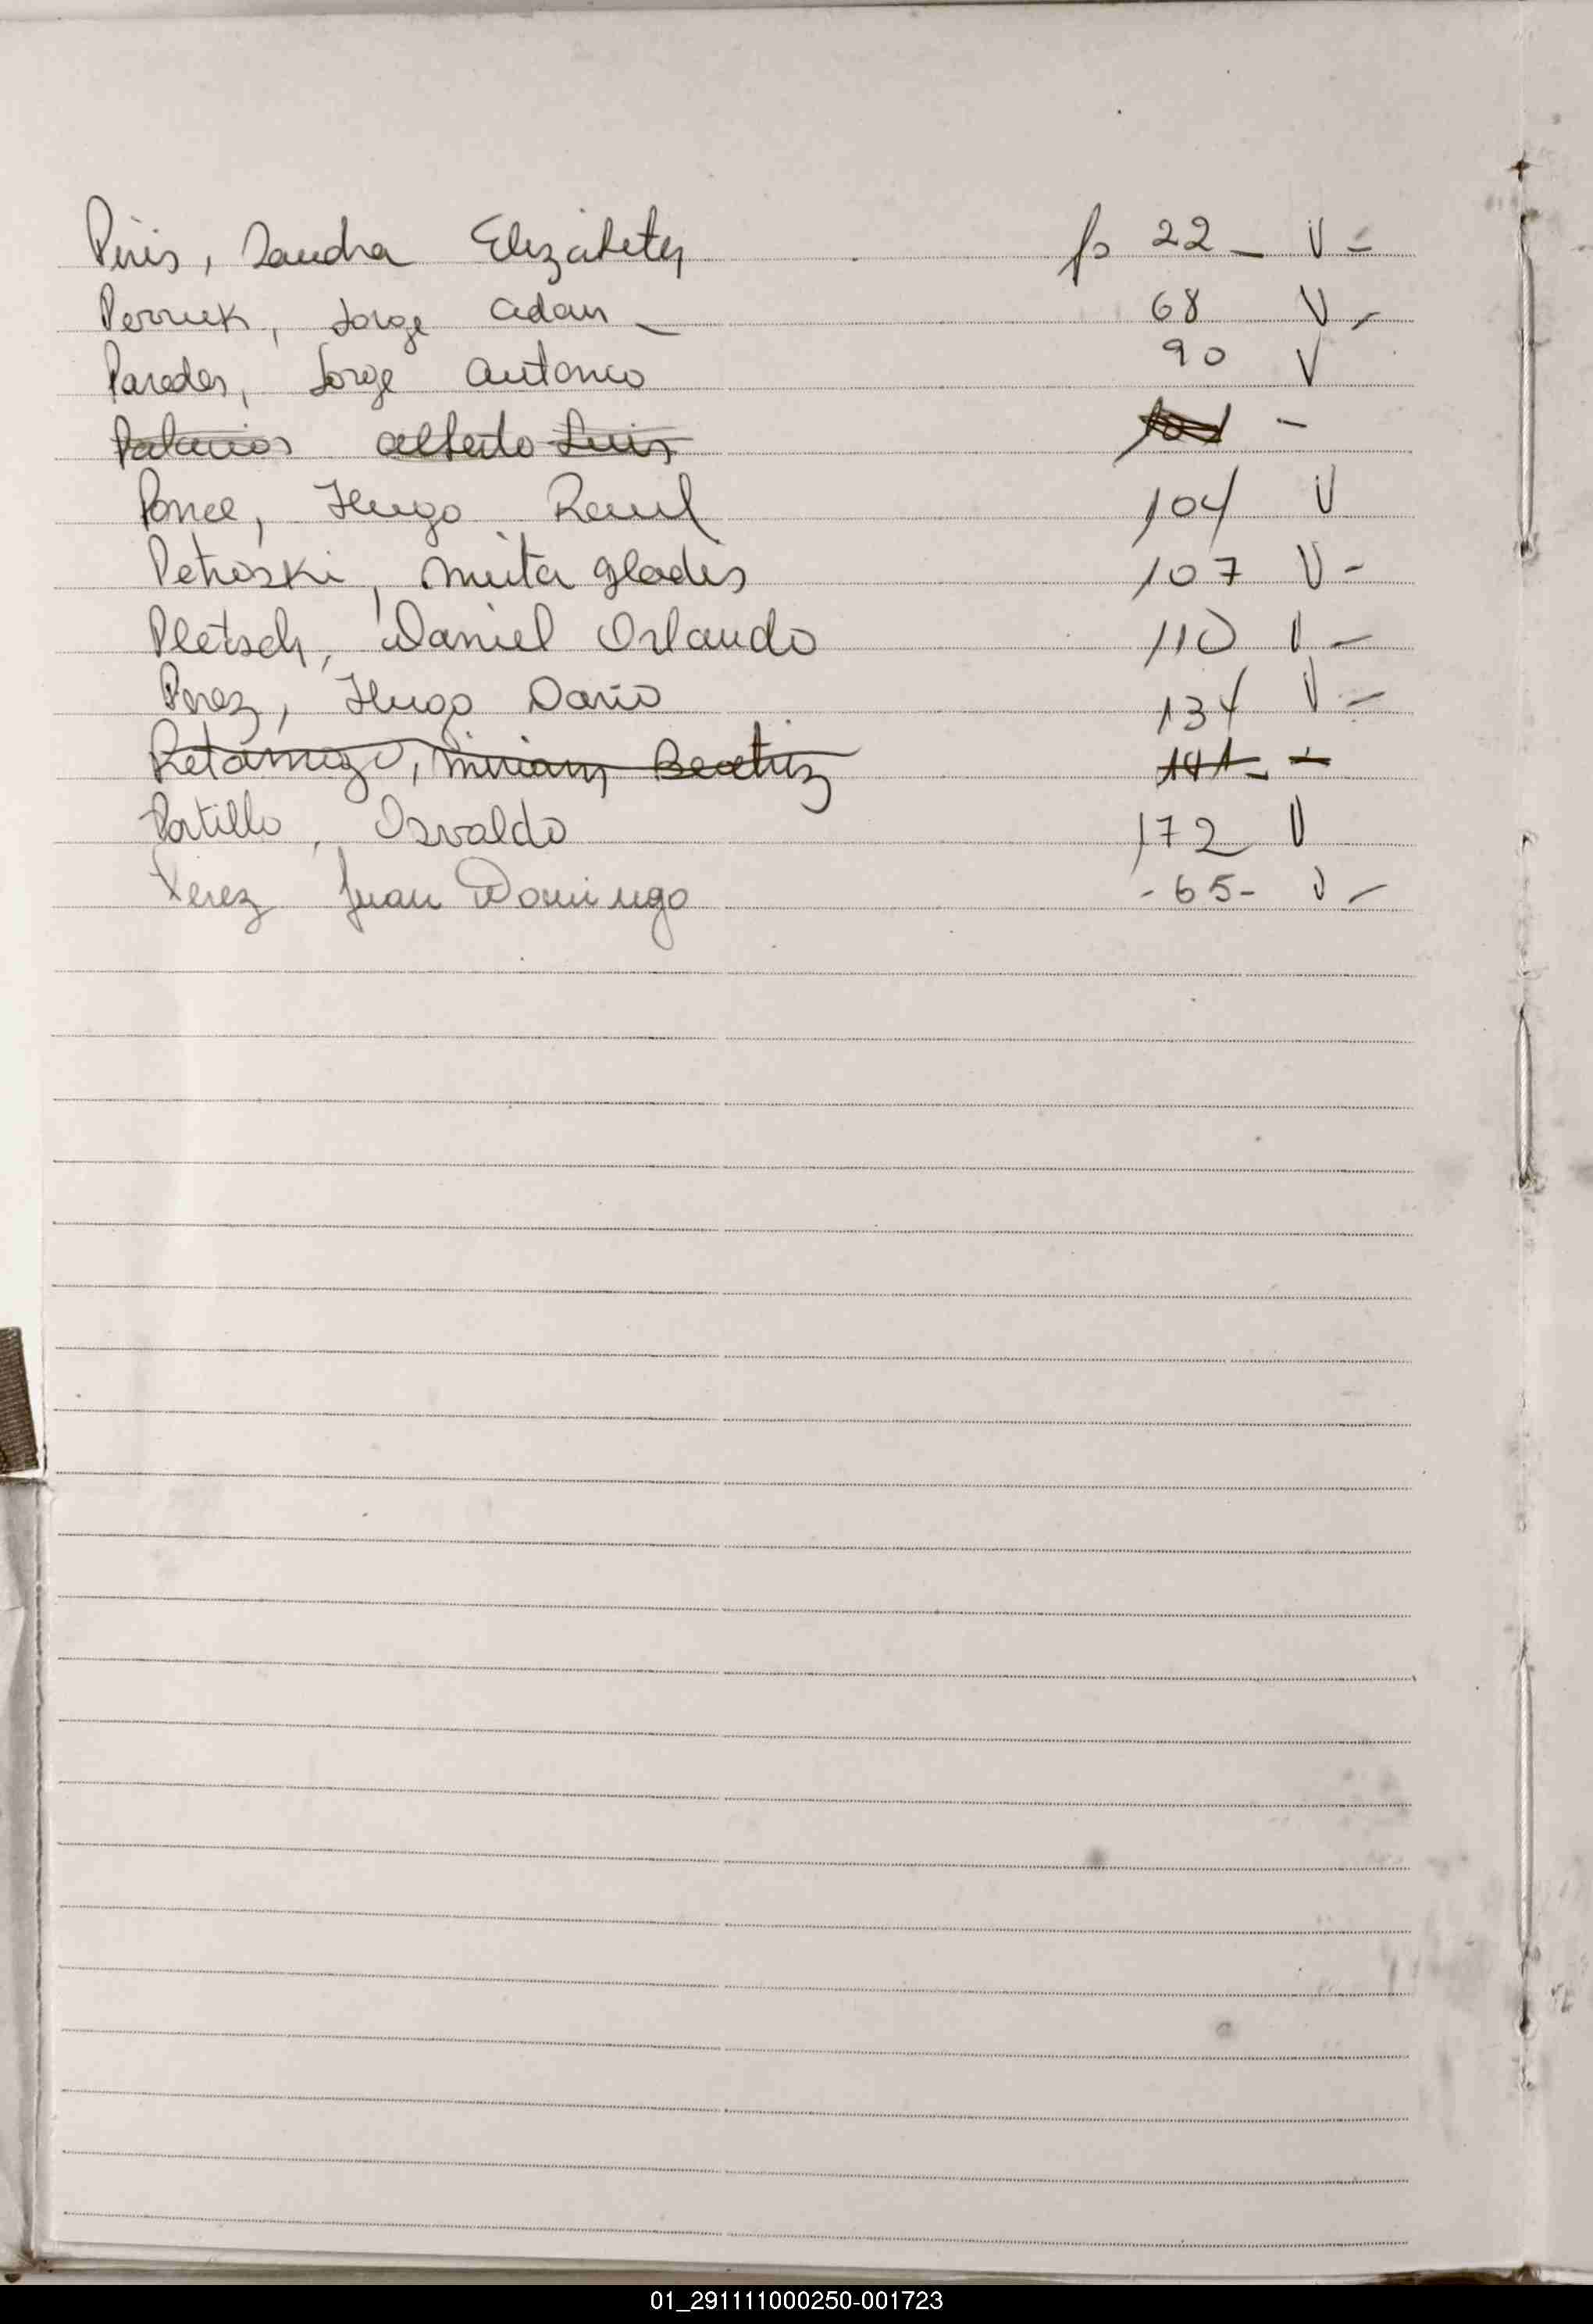 Piris, Sandra Elizabeth fo 22 - V -
Perruk, Jorge Adan - 68 V -
Paredes, Jorge Antonio 90 V
Palacios Alberto Luis -
Ponce, Hugo Raul 104 V
Petroski, Mirta Glades 107 V -
Pletsch, Daniel Orlando 110 V -
Perez, Hugo Dario 134 V -
Retamozo, Miriam Beatriz 141 - -
Portillo, Osvaldo 172 V
Perez Juan Domingo - 65 - V -
01_291111000250-001723